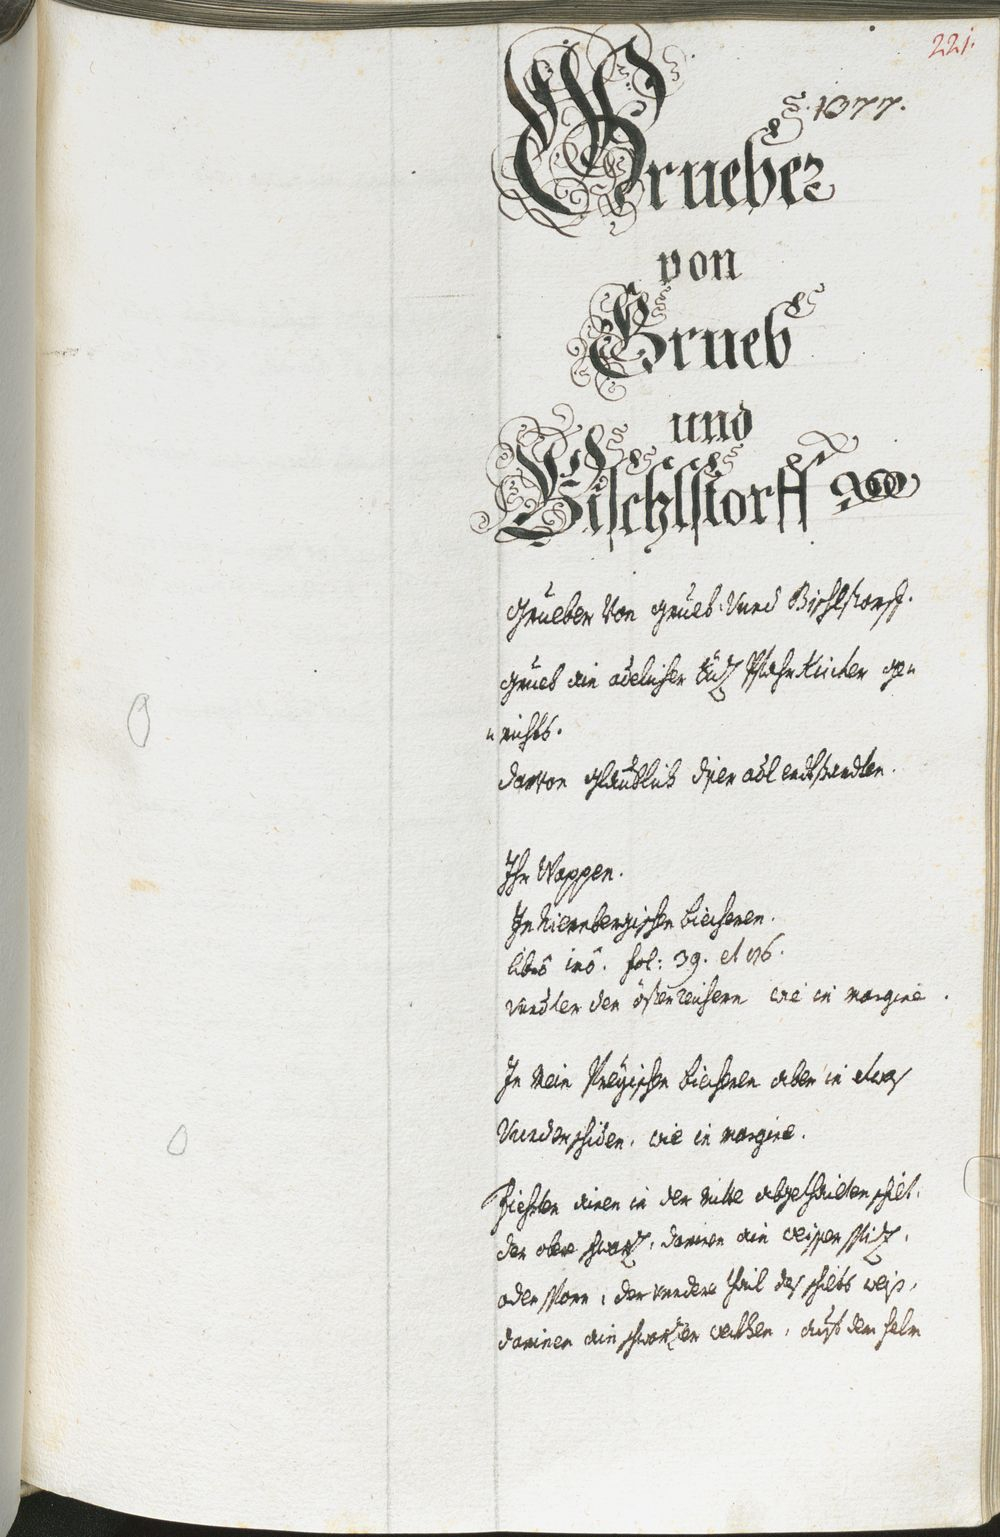 221.
1377.
Grueber
von
Grueb
und
Bischlstorff
Grueber Von Grueb Vnnd Bischlstorff.
Grueb ain adelicher Siz Pfahrkircher ge„
„richts.
darvon glaublich diser adl endtstandten.
Ihr Wappen.
In Niernbergischen biecheren.
libro imo. fol: 39. et 76.
vndter den össterreichern wie in margine.
In mein Preyischen biecheren aber in etwas
Vnderschiden. wie in margine.
Fiehrten ainen in der mitte abgethailten schilt.
der obere schwarz, darinen ain weisser Spiz,
oder Sporn, der vndere thail des schilts weiß,
darinen ain schwarzer weckhen, auf dem helm